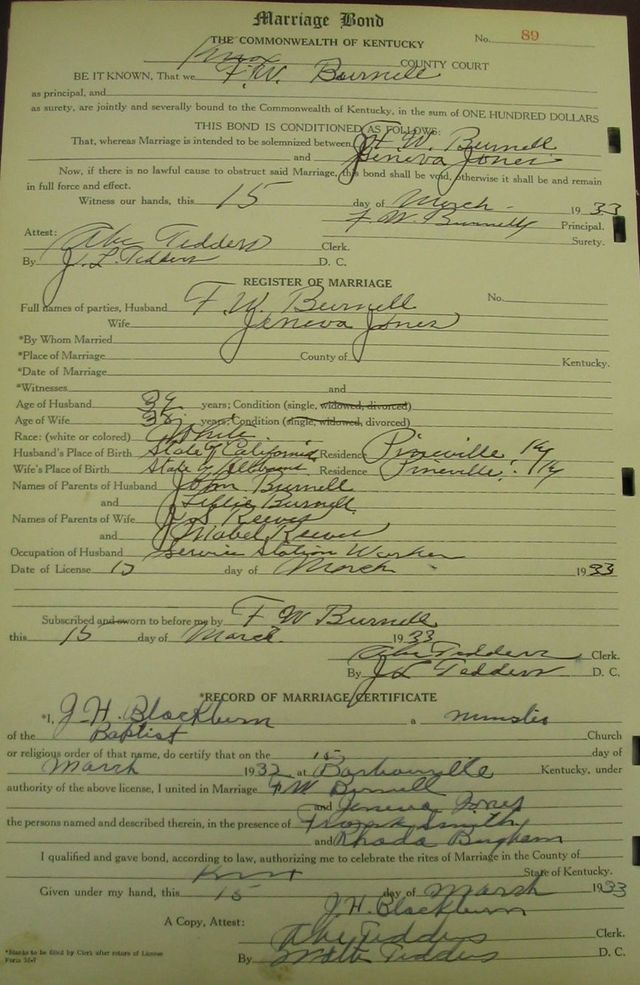 Marriage Bond
THE COMMONWEALTH OF KENTUCKY No. 89
Knox COUNTY COURT
BE IT KNOWN, That we F. W. Burnell
as principal, and
as surety, are jointly and severally bound to the Commonwealth of Kentucky, in the sum of ONE HUNDRED DOLLARS
THIS BOND IS CONDITIONED AS FOLLOWS:
That, whereas Marriage is intended to be solemnized between F. W. Burnell
and Jeneva Jones
Now, if there is no lawful cause to obstruct said Marriage, this bond shall be void, otherwise it shall be and remain
in full force and effect.
Witness our hands, this 15 day of March 1933
F. W. Burnell Principal.
Surety.
Attest: Abe Tedders Clerk.
By J. L. Tedders D. C.
REGISTER OF MARRIAGE
Full names of parties, Husband F. W. Burnell No.
Wife Jeneva Jones
*By Whom Married
*Place of Marriage County of Kentucky.
*Date of Marriage
*Witnesses and
Age of Husband years; Condition (single, widowed, divorced)
Age of Wife years; Condition (single, widowed, divorced)
Race: (white or colored) White
Husband's Place of Birth State of California Residence Pineville Ky
Wife's Place of Birth State of Alabama Residence Pineville, Ky
Names of Parents of Husband John Burnell
and Lillie Burnell
Names of Parents of Wife Reeves
and Mabel Reeves
Occupation of Husband Service Station Worker
Date of License 15 day of March 1933
Subscribed and sworn to before me by F W Burnell
this 15 day of March 1933
Abe Tedders Clerk.
By J L Tedders D. C.
*RECORD OF MARRIAGE CERTIFICATE
*I, J. H. Blackburn a minister
of the Baptist Church
or religious order of that name, do certify that on the 15 day of
March 1933 at Barbourville Kentucky, under
authority of the above license, I united in Marriage F W Burnell
and Jeneva Jones
the persons named and described therein, in the presence of Frank Smith
and Rhoda Bingham
I qualified and gave bond, according to law, authorizing me to celebrate the rites of Marriage in the County of
Knox State of Kentucky.
Given under my hand, this 15 day of March 1933
J. H. Blackburn
A Copy, Attest: Abe Tedders Clerk.
By Tedders D. C.
*Blanks to be filled by Clerk after return of License